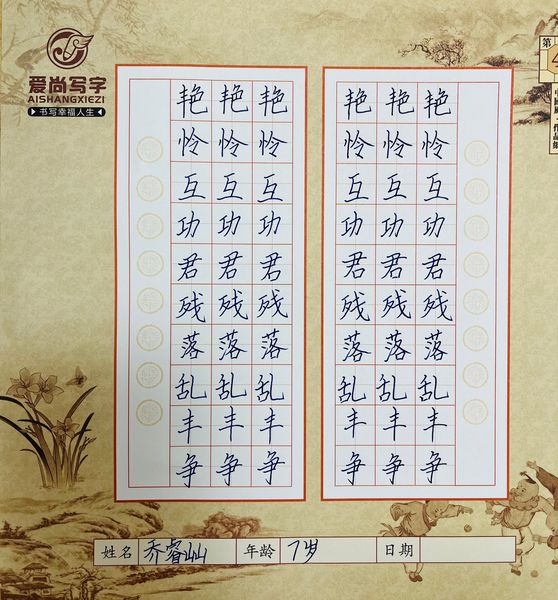 爱尚写字
AISHANGXIEZI
书写幸福人生
第
作品集
艳艳艳 艳艳艳
怜怜怜 怜怜怜
互互互 互互互
功功功 功功功
君君君 君君君
残残残 残残残
落落落 落落落
乱乱乱 乱乱乱
丰丰丰 丰丰丰
争争争 争争争
姓名 乔睿灿 年龄 7岁 日期